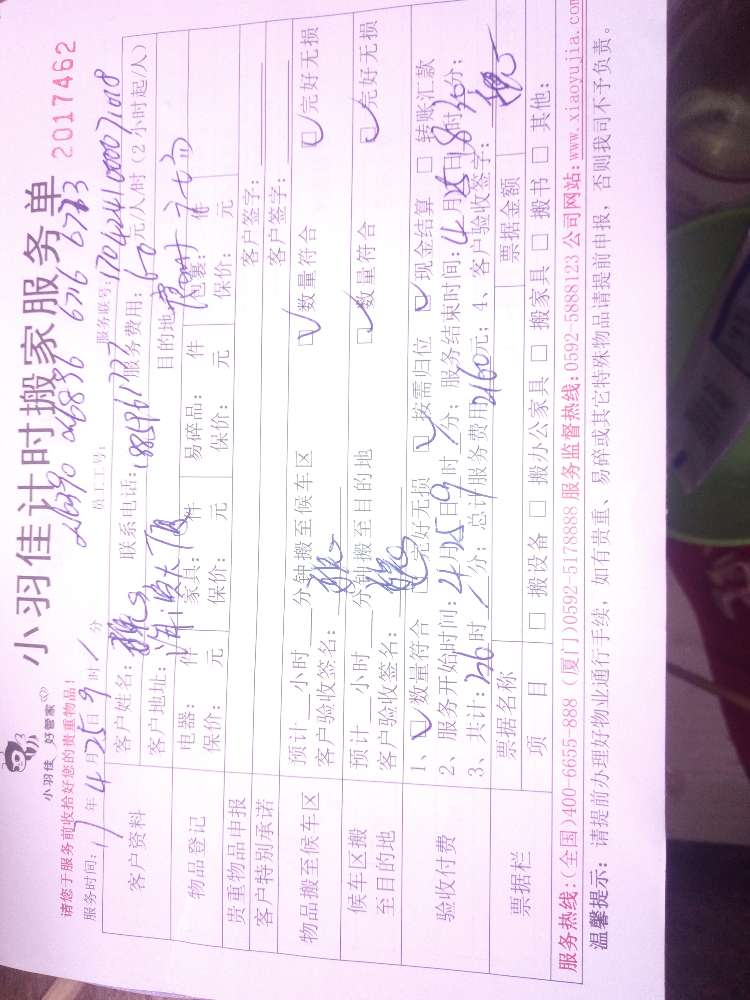 小羽佳 好管家
小羽佳计时搬家服务单 2017462
请您于服务前收拾好您的贵重物品！
26390 26836 6716 6783
服务时间：17年4月25日9时1分 员工工号： 服务账号：170424410000071018
客户资料 客户姓名： 联系电话：18859261777 服务费用：60元/人/时（2小时起/人）
客户地址： 目的地
物品登记 电器： 件 家具： 件 易碎品： 件 包裹： 件
保价： 元 保价： 元 保价： 元 保价： 元
贵重物品申报 客户签字：
客户特别承诺 客户签字：
物品搬至候车区 预计 小时 分钟搬至候车区 数量符合 完好无损
客户验收签名：
候车区搬至目的地 预计 小时 分钟搬至目的地 数量符合 完好无损
客户验收签名：
验收付费 1、 数量符合 完好无损 按需归位 现金结算 转账汇款
2、服务开始时间：4月25日9时 分；服务结束时间：4月25日18时 分；
3、共计：36时 分；总计服务费用2160元；4、客户验收签字：
票据栏 票据名称 票据金额
项 目 搬设备 搬办公家具 搬家具 搬书 其他：
服务热线：(全国)400-6655-888 (厦门)0592-5178888 服务监督热线：0592-5888123 公司网站：www.xiaoyujia.com
温馨提示： 请提前办理好物业通行手续，如有贵重、易碎或其它特殊物品请提前申报，否则我司不予负责。